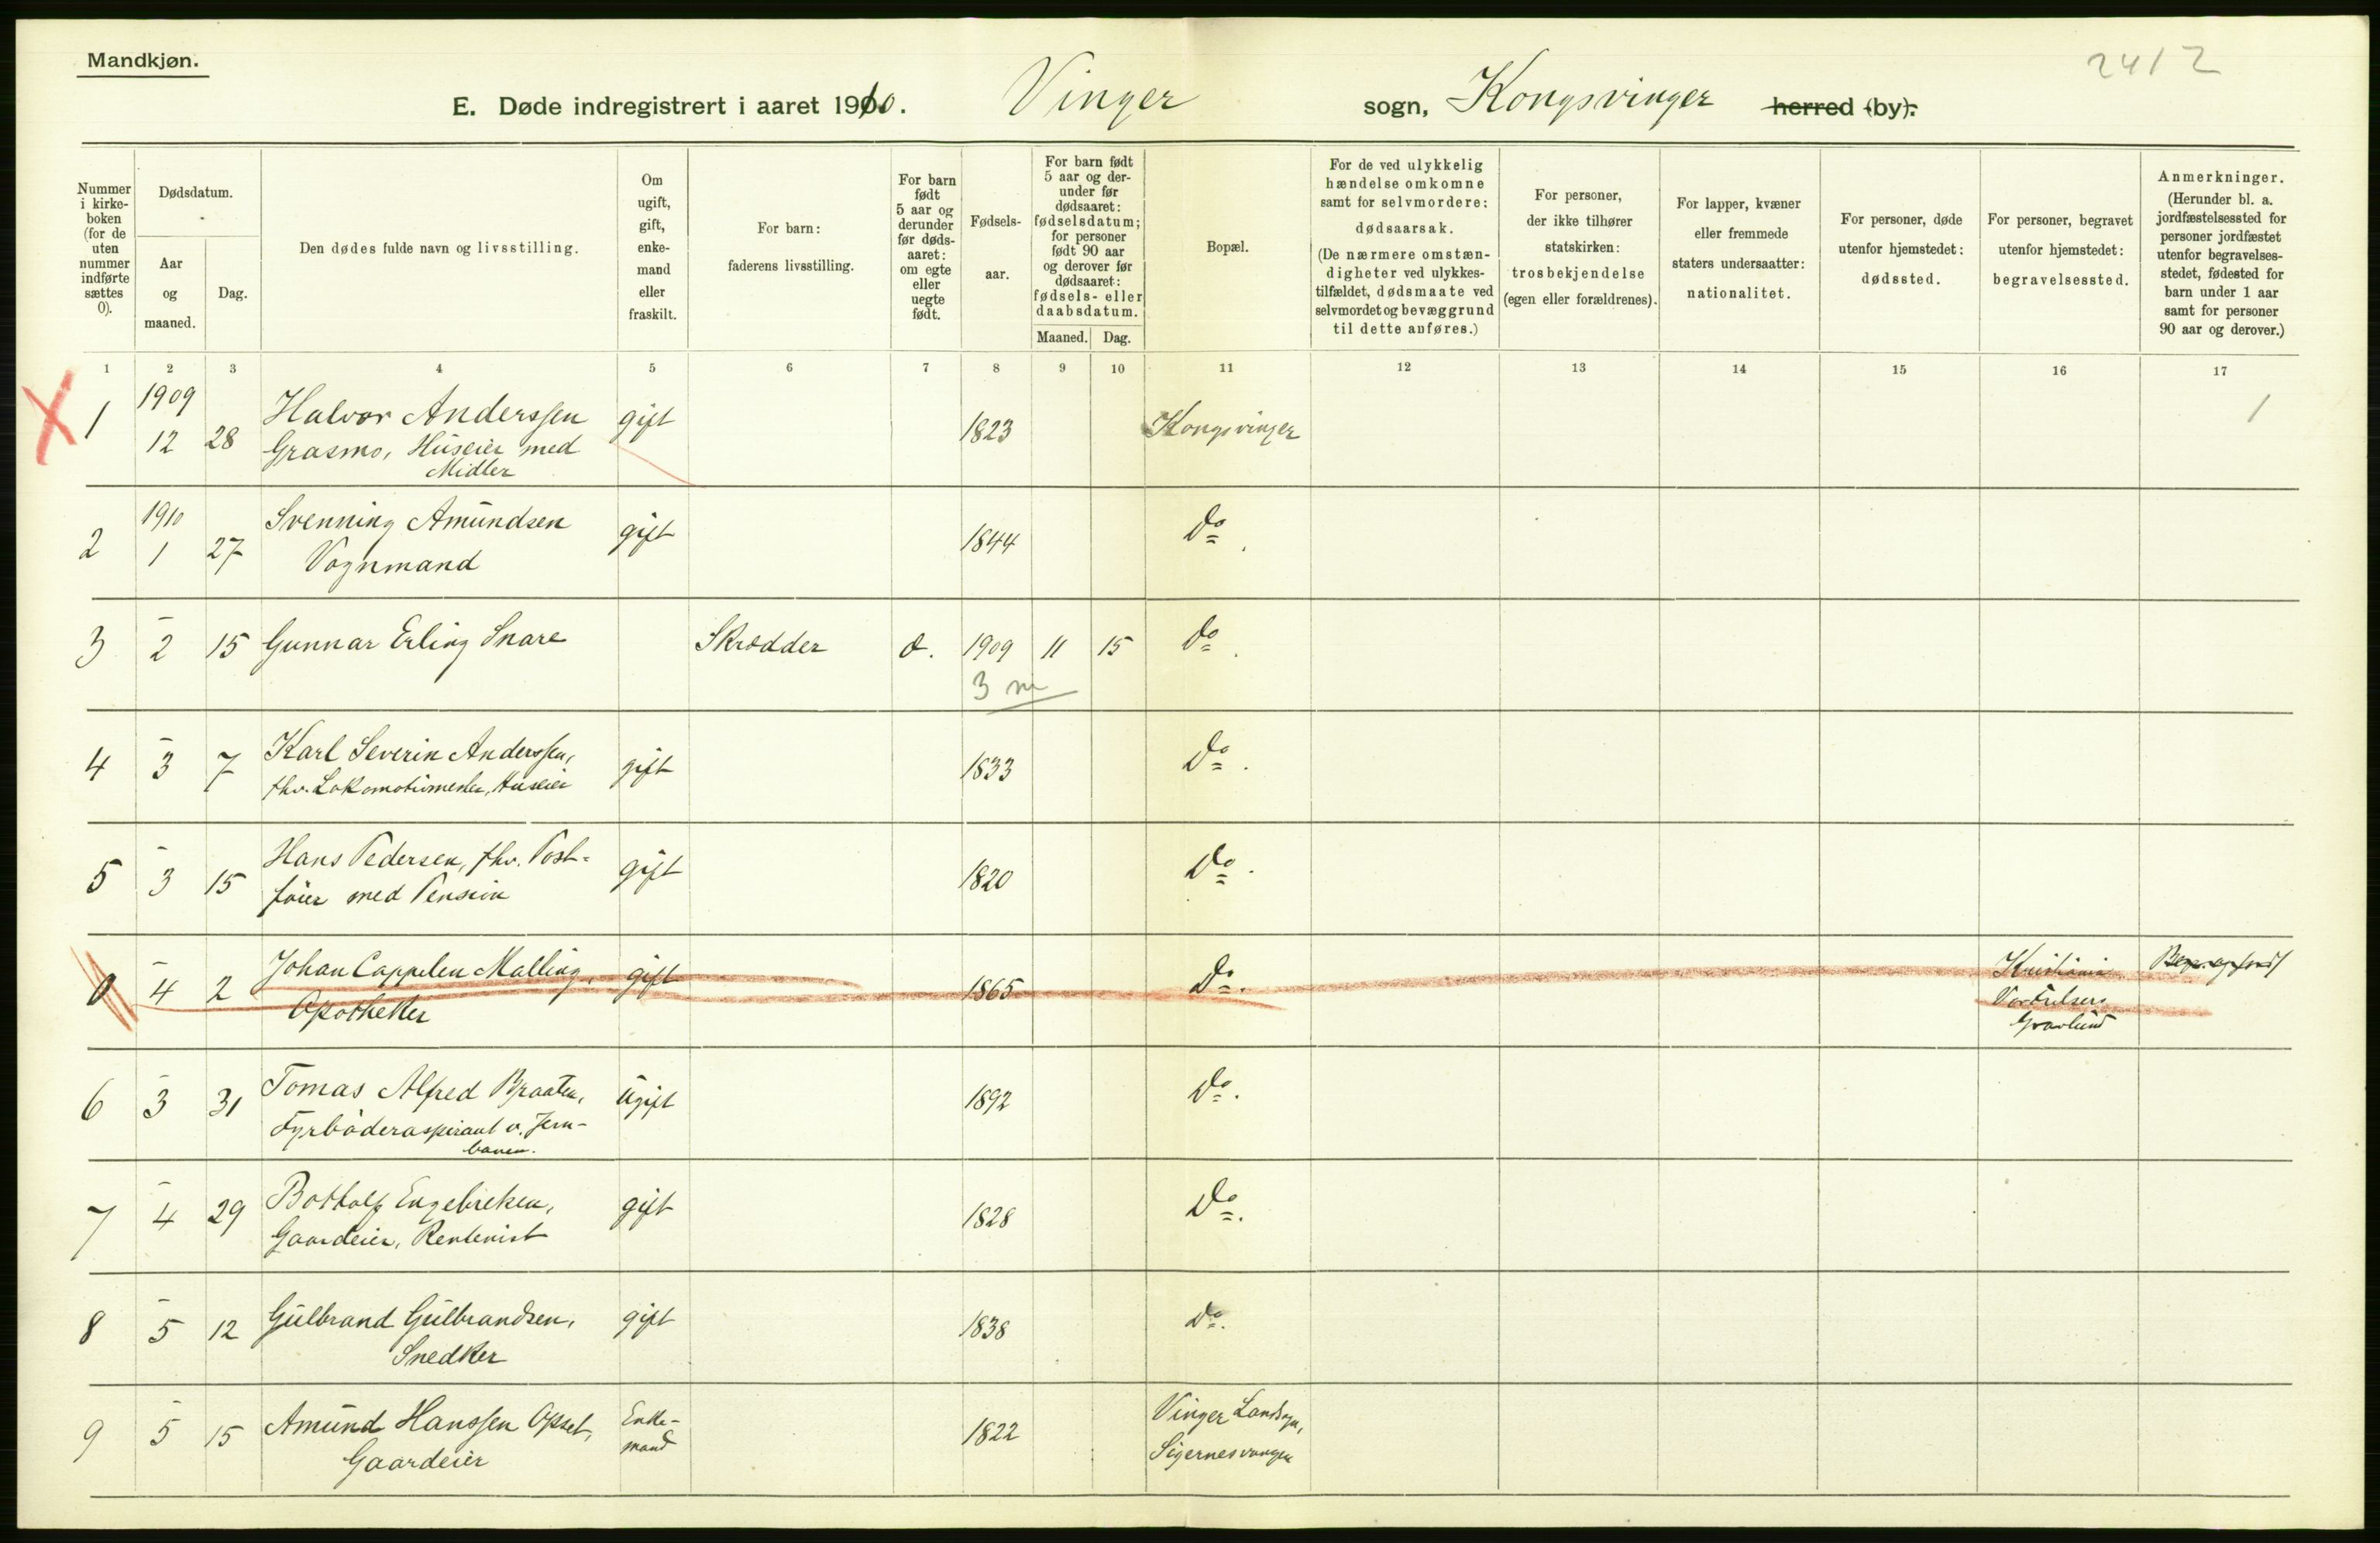 Mandkjøn.
2412
E. Døde indregistrert i aaret 1910. Vinger sogn, Kongsvinger herred (by).
Nummer
i kirke-
boken
(for de
uten
nummer
indførte
sættes
0).
Dødsdatum.
Aar
og
maaned.
Dag.
Den dødes fulde navn og livsstilling.
Om
ugift,
gift,
enke-
mand
eller
fraskilt.
For barn:
faderens livsstilling.
For barn
født
5 aar og
derunder
før døds-
aaret:
om egte
eller
uegte
født.
Fødsels-
aar.
For barn født
5 aar og der-
under før
dødsaaret:
fødselsdatum;
for personer
født 90 aar
og derover før
dødsaaret:
fødsels- eller
daabsdatum.
Maaned. Dag.
Bopæl.
For de ved ulykkelig
hændelse omkomne
samt for selvmordere:
dødsaarsak.
(De nærmere omstæn-
digheter ved ulykkes-
tilfældet, dødsmaate ved
selvmordet og bevæggrund
til dette anføres.)
For personer,
der ikke tilhører
statskirken:
trosbekjendelse
(egen eller forældrenes).
For lapper, kvæner
eller fremmede
staters undersaatter:
nationalitet.
For personer, døde
utenfor hjemstedet:
dødssted.
For personer, begravet
utenfor hjemstedet:
begravelsessted.
Anmerkninger.
(Herunder bl. a.
jordfæstelsessted for
personer jordfæstet
utenfor begravelses-
stedet, fødested for
barn under 1 aar
samt for personer
90 aar og derover.)
1 2 3 4 5 6 7 8 9 10 11 12 13 14 15 16 17
1909
1 12 28 Halvor Anderssen gift 1823 Kongsvinger 1
Grasmo, Huseier med
Midler
1910
2 1 27 Svenning Amundsen gift 1844 Do
Vognmand
3 2 15 Gunnar Erling Snare Skrædder e. 1909 11 15 Do
3 m
4 3 7 Karl Severin Anderssen, gift 1833 Do
fhv. Lokomotivmester, Huseier
5 3 15 Hans Pedersen, fhv. Post- gift 1820 Do
fører med Pension
0 4 2 Johan Cappelen Malling, gift 1865 Do. Kristiania
Apotheker Vor Frelsers
Gravlund
6 3 31 Tomas Alfred Braaten, ugift 1892 Do.
Fyrbøderaspirant v. Jern-
banen.
7 4 29 Botholf Engebretsen, gift 1828 Do.
Gaardeier, Rentenist
8 5 12 Gulbrand Gulbrandsen, gift 1838 Do.
Snedker
9 5 15 Amund Hanssen Opset, Enke- 1822 Vinger Landsogn,
Gaardeier mand Sigernesvangen